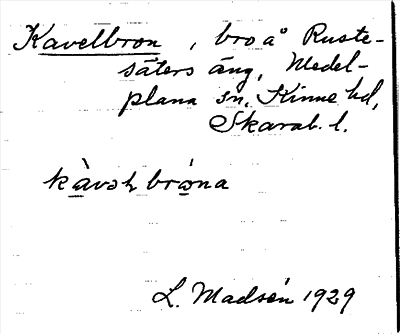 Kavelbron, bro å Ruste-
säters äng, Medel-
plana sn, Kinne hd,
Skarab. l.
kàvəɫ brωna
L. Madsén 1929